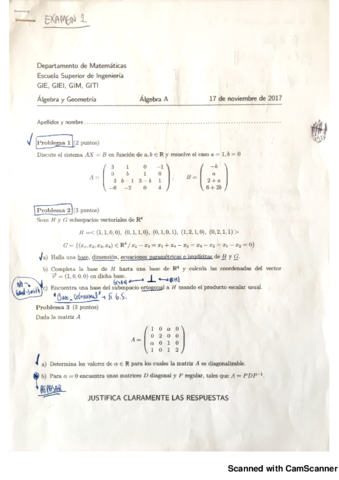 EXAMEN 1
Departamento de Matemáticas
Escuela Superior de Ingeniería
GIE, GIEI, GIM, GITI
Álgebra y Geometría Álgebra A 17 de noviembre de 2017
Apellidos y nombre
Problema 1 (2 puntos)
Discute el sistema AX = B en función de a, b ∈ R y resuelve el caso a = 1, b = 0
Problema 2 (3 puntos)
Sean H y G subespacios vectoriales de R⁴
H =< (1, 1, 0, 0), (0, 1, 1, 0), (0, 1, 0, 1), (1, 2, 1, 0), (0, 2, 1, 1) >
a) Halla una base, dimensión, ecuaciones paramétricas e implícitas de H y G.
b) Completa la base de H hasta una base de R⁴ y calcula las coordenadas del vector
= (1, 0, 0, 0) en dicha base.
c) Encuentra una base del subespacio ortogonal a H usando el producto escalar usual.
Problema 3 (3 puntos)
Dada la matriz A
A =
1 0 α 0
0 2 0 0
α 0 1 0
1 0 1 2
a) Determina los valores de α ∈ R para los cuales la matriz A es diagonalizable.
b) Para α = 0 encuentra unas matrices D diagonal y P regular, tales que A = PDP⁻¹.
REPASAR
JUSTIFICA CLARAMENTE LAS RESPUESTAS
Scanned with CamScanner